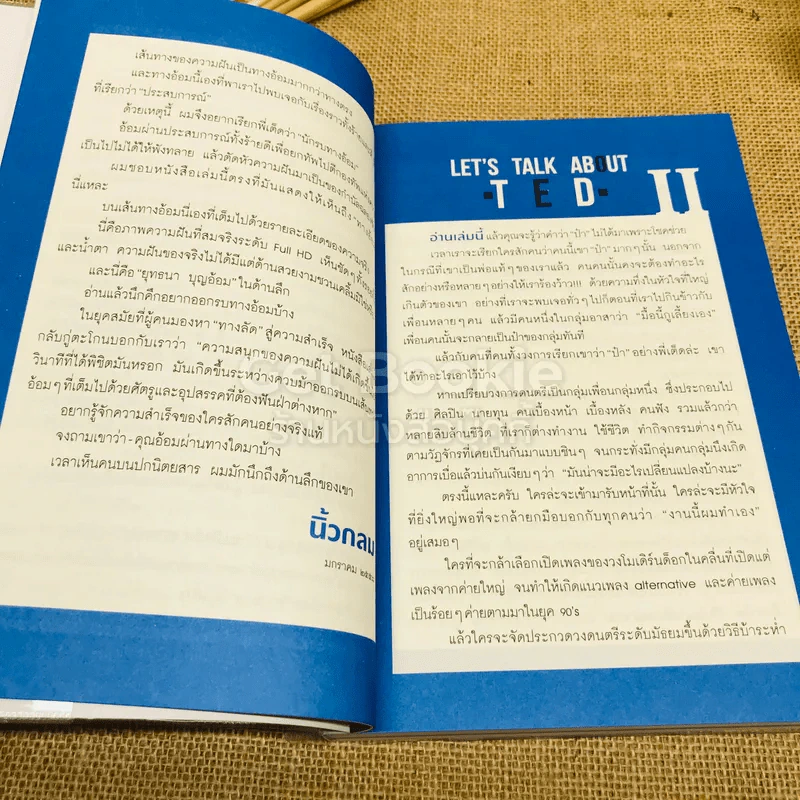 เส้นทางของความฝันเป็นทางอ้อมมากกว่าทางตรง
และทางอ้อมนี้เองที่พาเราไปพบเจอกับเรื่องราวทั้งร้ายและดี
ที่เรียกว่า "ประสบการณ์"
ด้วยเหตุนี้ ผมจึงอยากเรียกพี่เต็ดว่า "นักรบทางอ้อม"
อ้อมผ่านประสบการณ์ทั้งร้ายดีเพื่อยกทัพไปตีกองทัพ
เป็นไปไม่ได้ให้พังทลาย แล้วตัดหัวความฝันมาเป็นของกำนัล
ผมชอบหนังสือเล่มนี้ตรงที่มันแสดงให้เห็นถึง "ทาง
นี่แหละ
บนเส้นทางอ้อมนี้เองที่เต็มไปด้วยรายละเอียดของความ
นี่คือภาพความฝันที่สมจริงระดับ Full HD เห็นชัดๆ ทั้ง
และน้ำตา ความฝันของจริงไม่ได้มีแต่ด้านสวยงามชวนเคลิ้ม
และนี่คือ "ยุทธนา บุญอ้อม" ในด้านลึก
อ่านแล้วนึกคึกอยากออกรบทางอ้อมบ้าง
ในยุคสมัยที่ผู้คนมองหา "ทางลัด" สู่ความสำเร็จ หนังสือ
กลับกู่ตะโกนบอกกับเราว่า "ความสนุกของความฝันไม่ได้เกิดขึ้น
วินาทีที่ได้พิชิตมันหรอก มันเกิดขึ้นระหว่างควบม้าออกรบบนเส้น
อ้อมๆ ที่เต็มไปด้วยศัตรูและอุปสรรคที่ต้องฟันฝ่าต่างหาก"
อยากรู้จักความสำเร็จของใครสักคนอย่างจริงแท้
จงถามเขาว่า - คุณอ้อมผ่านทางใดมาบ้าง
เวลาเห็นคนบนปกนิตยสาร ผมมักนึกถึงด้านลึกของเขา
นิ้วกลม
มกราคม
LET'S TALK ABOUT
·TED· II
อ่านเล่มนี้ แล้วคุณจะรู้ว่าคำว่า "ป๋า" ไม่ได้มาเพราะโชคช่วย
เวลาเราจะเรียกใครสักคนว่าคนนี้เขา "ป๋า" มากๆ นั้น นอกจาก
ในกรณีที่เขาเป็นพ่อแท้ๆ ของเราแล้ว คนคนนั้นคงจะต้องทำอะไร
สักอย่างหรือหลายๆ อย่างให้เราร้องว้าว!!! ด้วยความที่ใจใหญ่
เกินตัวของเขา อย่างที่เราจะพบเจอทั่วๆ ไปก็ตอนที่เราไปกินข้าวกับ
เพื่อนหลายๆ คน แล้วมีคนหนึ่งในกลุ่มอาสาว่า "มื้อนี้กูเลี้ยงเอง"
เพื่อนคนนั้นจะกลายเป็นป๋าของกลุ่มทันที
แล้วกับคนที่คนทั้งวงการเรียกเขาว่า "ป๋า" อย่างพี่เต็ดล่ะ เขา
ได้ทำอะไรเอาไว้บ้าง
หากเปรียบวงการดนตรีเป็นกลุ่มเพื่อนกลุ่มหนึ่ง ซึ่งประกอบไป
ด้วย ศิลปิน นายทุน คนเบื้องหน้า เบื้องหลัง คนฟัง รวมแล้วกว่า
หลายสิบล้านชีวิต ที่เราก็ต่างทำงาน ใช้ชีวิต ทำกิจกรรมต่างๆ กัน
ตามวัฏจักรที่เคยเป็นกันมาแบบชินๆ จนกระทั่งมีกลุ่มคนกลุ่มนึงเกิด
อาการเบื่อแล้วบ่นกันเงียบๆ ว่า "มันน่าจะมีอะไรเปลี่ยนแปลงบ้างนะ"
ตรงนี้แหละครับ ใครล่ะจะเข้ามารับหน้าที่นั้น ใครล่ะจะมีหัวใจ
ที่ยิ่งใหญ่พอที่จะกล้ายกมือบอกกับทุกคนว่า "งานนี้ผมทำเอง"
อยู่เสมอๆ
ใครที่จะกล้าเลือกเปิดเพลงของวงโมเดิร์นด็อกในคลื่นที่เปิดแต่
เพลงจากค่ายใหญ่ จนทำให้เกิดแนวเพลง alternative และค่ายเพลง
เป็นร้อยๆ ค่ายตามมาในยุค 90's
แล้วใครจะจัดประกวดวงดนตรีระดับมัธยมขึ้นด้วยวิธีบ้าระห่ำ